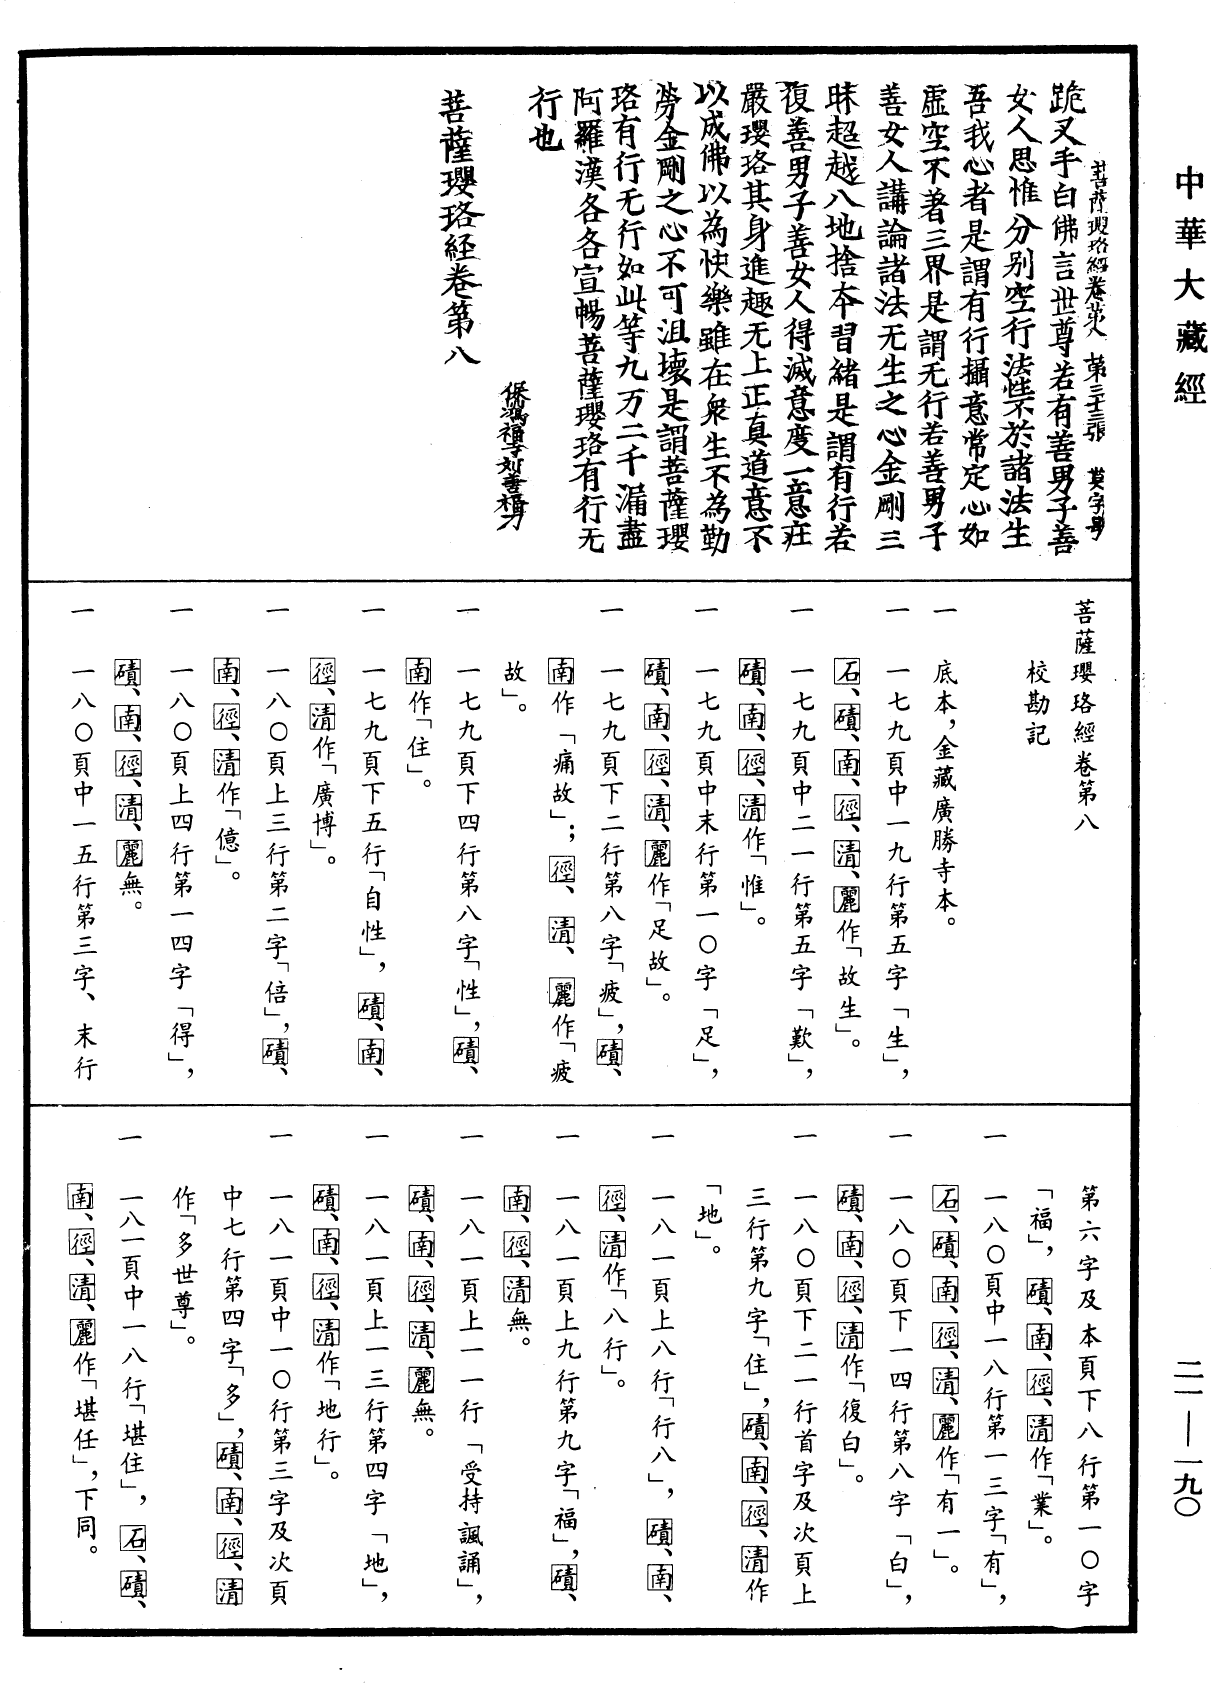 中華大藏經
菩薩瓔珞經卷第八 第三十三張 莫字号
跪叉手白佛言世尊若有善男子善
女人思惟分别空行法㘽不於諸法生
吾我心者是謂有行攝意常定心如
虛空不著三界是謂无行若善男子
善女人講論諸法无生之心金剛三
昧超越八地捨本習緒是謂有行若
復善男子善女人得滅意度一意莊
嚴瓔珞其身進趣无上正真道意不
以成佛以為快樂雖在衆生不為勤
勞金剛之心不可沮壞是謂菩薩瓔
珞有行无行如此等九万二千漏盡
阿羅漢各各宣暢菩薩瓔珞有行无
行也
菩薩瓔珞經卷第八
菩薩瓔珞經卷第八
校勘記
一 底本，金藏廣勝寺本。
一 一七九頁中一九行第五字「生」，
石、磧、南、徑、清、麗作「故生」。
一 一七九頁中二一行第五字「歎」，
磧、南、徑、清作「惟」。
一 一七九頁中末行第一〇字「足」，
磧、南、徑、清、麗作「足故」。
一 一七九頁下二行第八字「疲」，磧、
南作「痛故」；徑、清、麗作「疲
故」。
一 一七九頁下四行第八字「性」，磧、
南作「住」。
一 一七九頁下五行「自性」，磧、南、
徑、清作「廣博」。
一 一八〇頁上三行第二字「倍」，磧、
南、徑、清作「億」。
一 一八〇頁上四行第一四字「得」，
磧、南、徑、清、麗無。
一 一八〇頁中一五行第三字、末行
第六字及本頁下八行第一〇字
「福」，磧、南、徑、清作「業」。
一 一八〇頁中一八行第一三字「有」，
石、磧、南、徑、清、麗作「有一」。
一 一八〇頁下一四行第八字「白」，
磧、南、徑、清作「復白」。
一 一八〇頁下二一行首字及次頁上
三行第九字「住」，磧、南、徑、清作
「地」。
一 一八一頁上八行「行八」，磧、南、
徑、清作「八行」。
一 一八一頁上九行第九字「福」，磧、
南、徑、清無。
一 一八一頁上一一行「受持諷誦」，
磧、南、徑、清、麗無。
一 一八一頁上一三行第四字「地」，
磧、南、徑、清作「地行」。
一 一八一頁中一〇行第三字及次頁
中七行第四字「多」，磧、南、徑、清
作「多世尊」。
一 一八一頁中一八行「堪住」，石、磧、
南、徑、清、麗作「堪任」，下同。
二一—一九〇